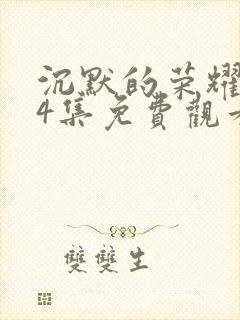 沉默的荣耀
4集免費觀
雙雙生